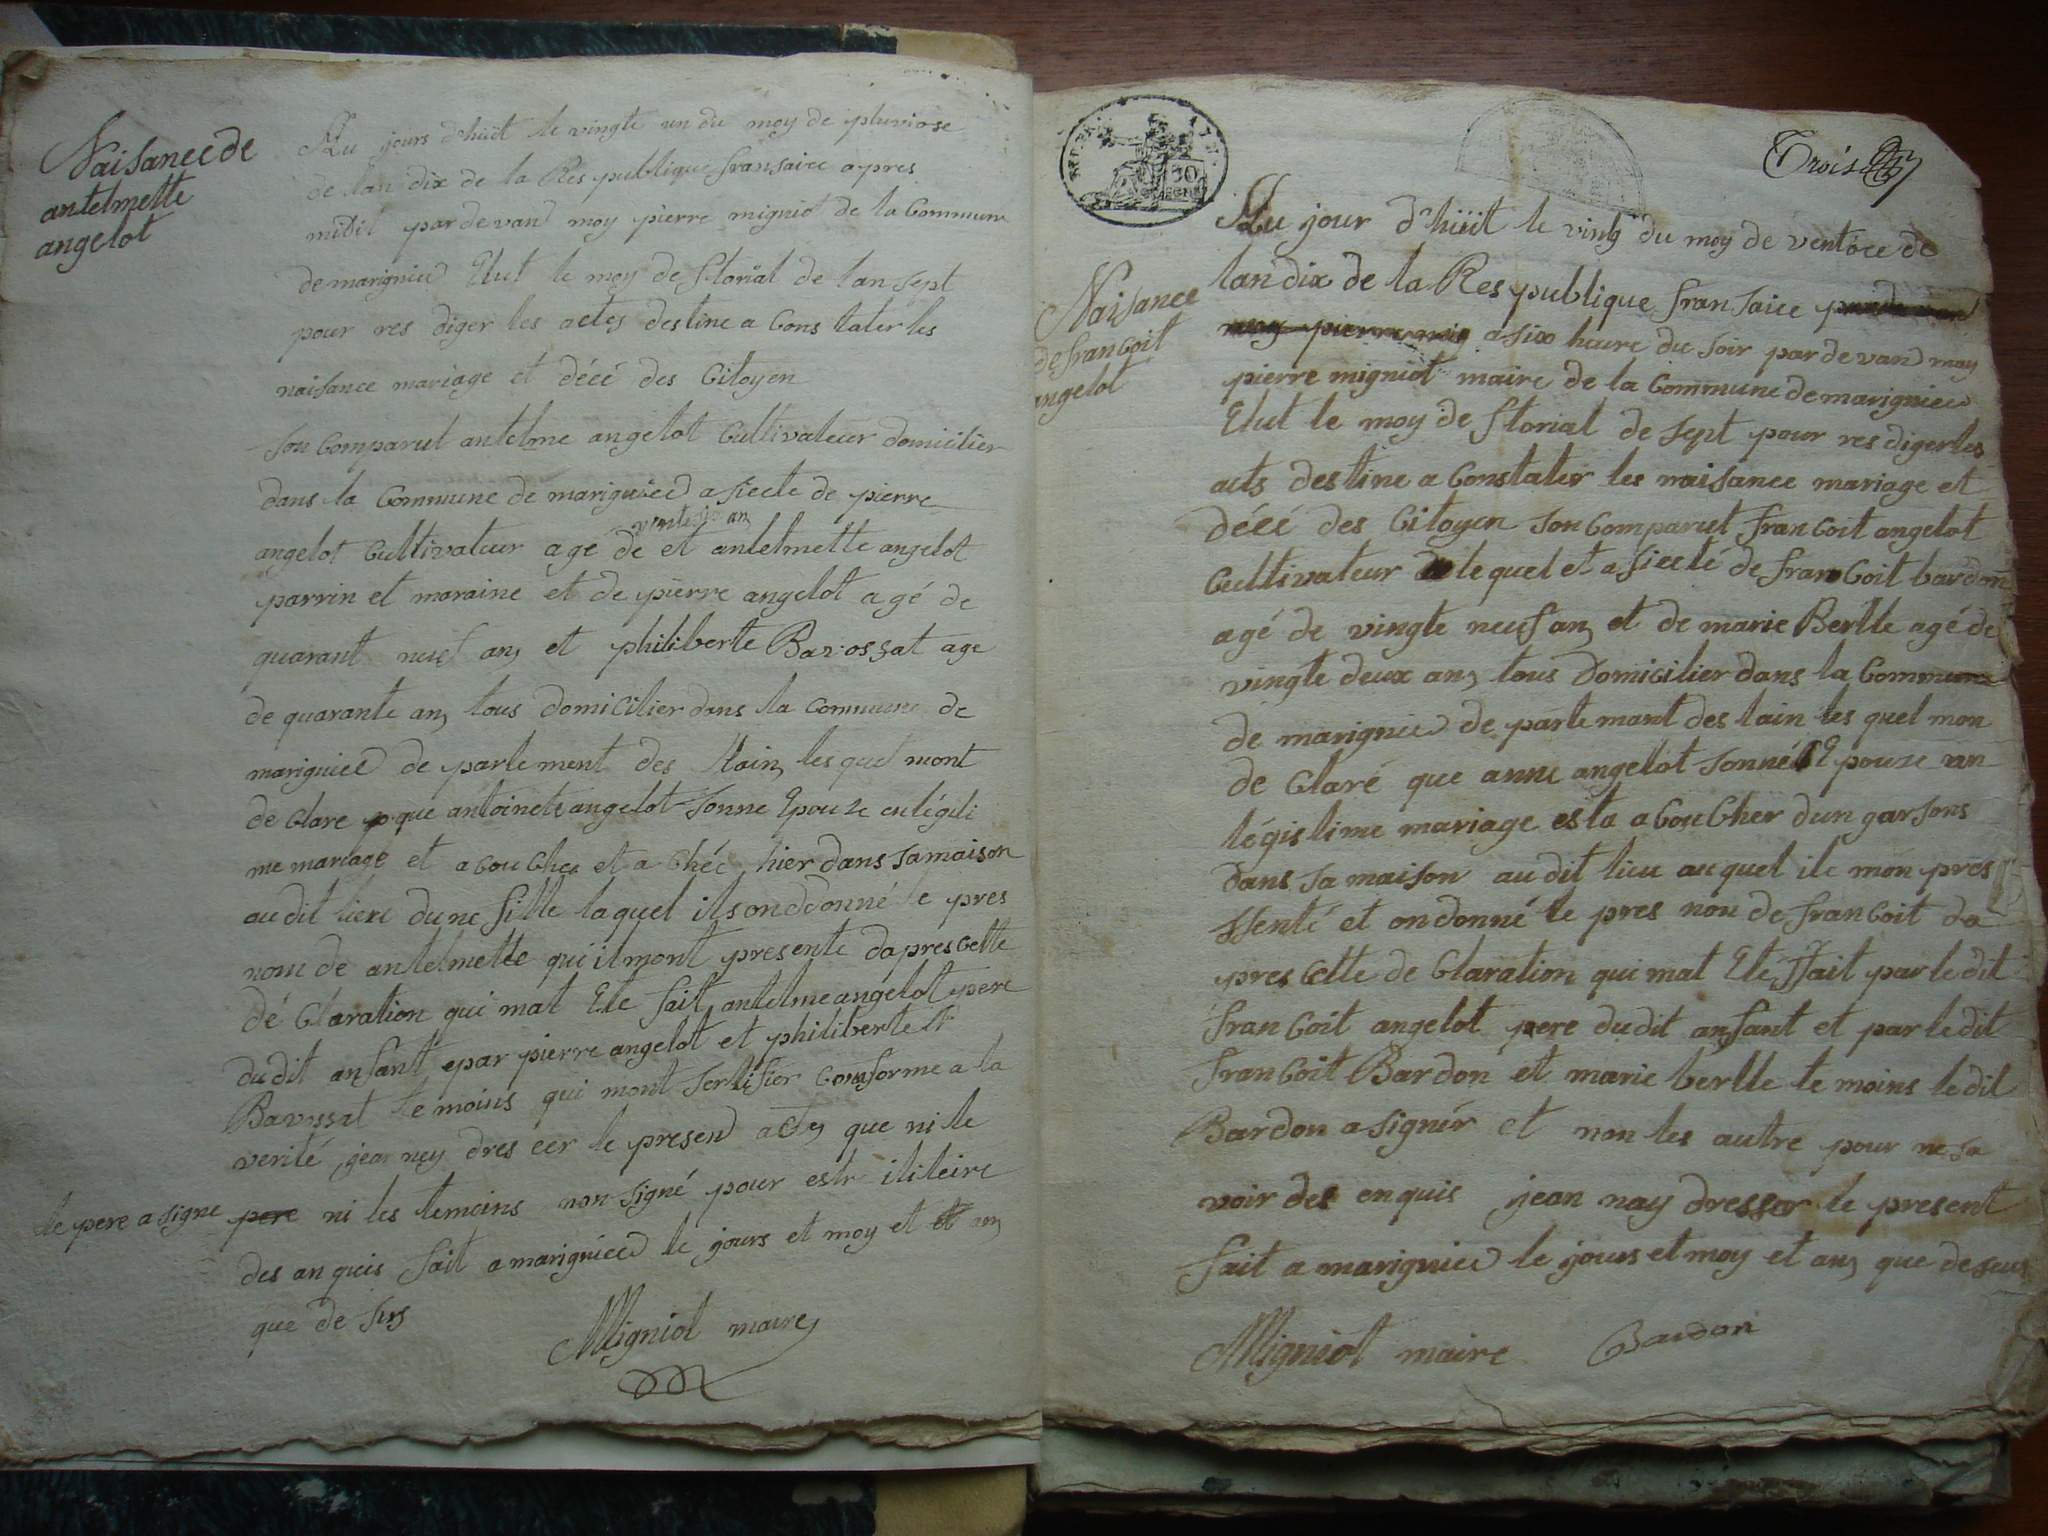 Naisance de
antelmette
angelot
Au jours d'huit le vingte un du moy de pluviose
de lan dix de la Res publique fransaice apres
midit par de van moy pierre migniot de la Commune
de marigniec Elut le moy de florial de lan sept
pour res diger les actes destine a Cons tater les
naisance mariage et décé des Citoyen
Son Comparut antelme angelot Cultivateur domicilier
dans la Commune de marigniec a siecte de pierre
angelot Cultivateur age de et antelmette angelot
parrin et maraine et de pierre angelot agé de
quarant neuf an et philiberte age
de quarante an tous domicilier dans la Commune de
marigniec de parlement des lain les quel mont
de Clare que antoinete angelot Sonne Epouze en légiti
me mariage et a Couche et a hier dans sa maison
au dit lieu dune fille laquel ils ondonné le pres
nom de antelmette qui il mont presente dapres Cette
dé Claration qui mat Ete fait antelme angelot pere
du dit anfant epar pierre angelot et philiberte
Bavossat te moins qui mont Sertifier Conforme a la
verité jean ney dres cer le presen acte que ni le
le pere a signe pere ni les temoins non signé pour estr iliteire
des an quis fait a marigniec le jours et moy et et an
que de sus
Migniot maire
Trois
Au jour d'huit le ving du moy de ventoce de
lan dix de la Res publique fransaice
Naisance
de francoit
angelot
moy pierre mig a six heure du soir par de van moy
pierre migniot maire de la Commune de marigniec
Elut le moy de florial de sept pour res diger les
acts destine a Constater les naisance mariage et
décé des Citoyen Son Comparut francoit angelot
Cultivateur le quel et a siecté de francoit bardon
agé de vingte neuf an et de marie Bertte agé de
vingte deux an tous Domicilier dans la Commune
de marigniec de partemant des lain les quel mon
de Claré que anne angelot Sonné Epouze un
légistime mariage esta a CouCher dun garsons
dans sa maison au dit lieu au quel ile mon pres
ssenté et on donné le pres nou de francoit da
pres Cette de Claration qui mat Ete ffait par le dit
francoit angelot pere du dit anfant et par le dit
francoit Bardon et marie bertte te moins le dit
Bardon a signér et non les autre pour ne sa
voir des enquis jean nay dresser le present
fait a marigniec le jours et moy et an que de sus
Migniot maire Bardon